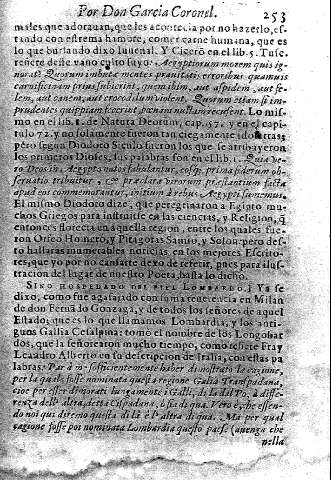 Por Don Garcia Coronel. 253
males que adorauan, que les acontecia por no hazerlo, es-
tando con estrema hambre, comer carne humana, que es
lo que burlando dixo Iuuenal. Y Ciceró en el lib. 5. Tusc.
refiere deste vano culto suyo: Aegyptiorum morem quis ig-
norat? Quorum imbutæ mentes prauitatis erroribus quamuis
carnificinam prius subierint, quem ibim, aut aspidem, aut fe-
lem, aut canem, aut crocodilum violent. Quorum etiam si im-
prudentes quippiam fecerint, pœnam nullam recusent. Lo mis-
mo en el lib. de Natura Deorum, cap. 57. y en el capi-
tulo 72. y no solamente fueron tan ciegamente idolatras,
pero segun Diodoro Siculo fueron los que se arrogaron
los primeros Dioses, sus palabras son en el lib. 1.
El mismo Diodoro dize, que peregrinaron a Egipto mu-
chos Griegos para instruirse en las ciencias, y Religion, q̃
entonces florecia en aquella region, entre los quales fue-
ron Orfeo Homero, y Pitagoras Samio, y Solon; pero des-
to hallaras inumerables noticias en los mejores Escrito-
res, que yo por no cansarte dexo de referir, pues para ilus-
tracion del lugar de nuestro Poeta, basta lo dicho.
SINO HOSPEDADO DEL FIEL LOMBARDO.] Ya se
dixo, como fue agasajado con suma reuerencia en Milan
de don Fernãdo Gonzaga, y de todos los señores de aquel
Estado, que es lo que llamamos Lombardia, y los anti-
guos Gallia Cisalpina: tomò el nombre de los Longobar-
dos, que la señorearon mucho tiempo, como refiere Fray
Leandro Alberto en su descripcion de Italia, con estas pa
labras: Par à me sofficientemente haber dimostrato le cagione,
per la quale fosse nominata questa regione Galia Transpadana,
cioè per esser dimorati lungamente i Galli, di là dal Pò, à diffe-
renza dell'altra, detta Cispadana, ò sia di quà. Vero è, che essen-
do noi quì diremo questa di là e l'altra di quà. Ma per qual
cagione fosse poi nominata Lombardia questo paese (auenga che
nella